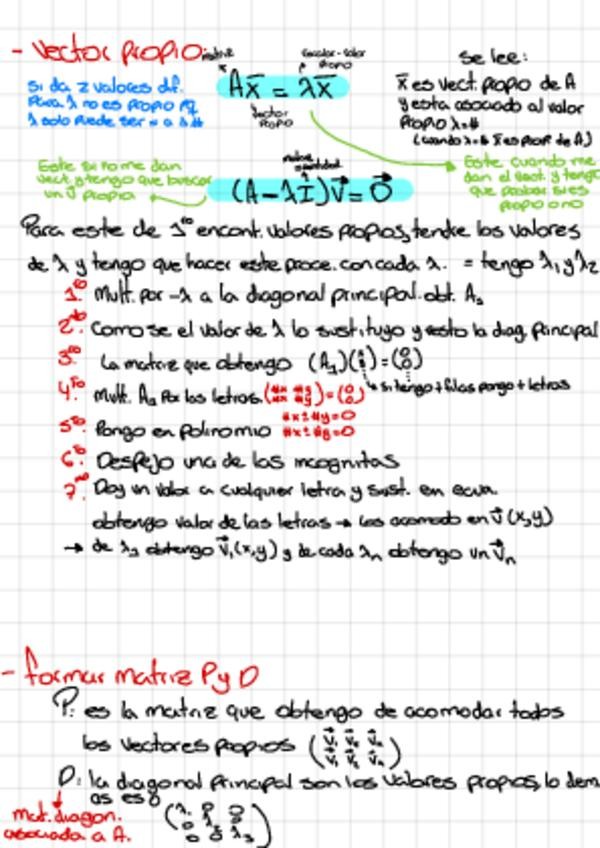 - vector propio:
matriz
escalar-valor propio
Ax̄ = λx̄
vector propio
Si da 2 valores dif.
para λ no es propio pq
λ solo puede ser = a 1 #
se lee:
x̄ es vect. propio de A
y esta asociado al valor
propio λ=#
(cuando λ=# x̄ es propio de A)
Este si no me dan
vect. y tengo que buscar
un v̄ propio
matriz identidad
(A-λI)v⃗ = 0⃗
Este cuando me
dan el vect. y tengo
que probar si es
propio o no
Para este de 1º encont. valores propios, tendre los valores
de λ y tengo que hacer este proce. con cada λ. = tengo λ₁ y λ₂
1º Mult. por -λ a la diagonal principal. obt. A₁
2º Como se el valor de λ lo sustituyo y resto la diag. principal
3º La matriz que obtengo (A₁)( )=(0 0)
si tengo + filas pongo + letras
4º Mult. A₁ por las letras. (#x #y #x #y)=(0 0)
5º Pongo en polinomio #x±#y=0
#x±#y=0
6º Despejo una de las incognitas
7º Doy un valor a cualquier letra y sust. en ecua.
obtengo valor de las letras → las acomodo en v⃗ (x,y)
→ de λ₁ obtengo v⃗₁(x,y) y de cada λₙ obtengo un v⃗ₙ
- formar matriz P y D
P: es la matriz que obtengo de acomodar todos
los vectores propios (v⃗₁ v⃗₂ v⃗ₙ)
D: la diagonal principal son los valores propios, lo dem
as es 0
mat. diagon.
asociada a A.
(λ₁ 0 0
0 λ₂ 0
0 0 λ₃)